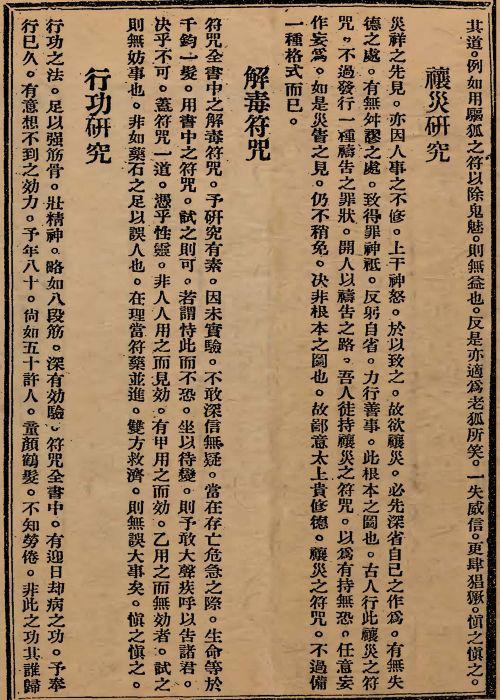 其道。例如用驅狐之符以除鬼魅。則無益也。反是亦適爲老狐所笑。一失威信。更肆猖獗。愼之愼之。
禳災硏究
災祥之先見。亦因人事之不修。上干神怒。於以致之。故欲禳災。必先深省自己之作爲。有無失
德之處。有無舛謬之處。致得罪神祗。反躬自省。力行善事。此根本之圖也。古人行此禳災之符
咒。不過發行一種禱告之罪狀。開人以禱告之路。吾人徒持禳災之符咒。以爲有持無恐。任意妄
作妄爲。如是災眚之見。仍不稍免。决非根本之圖也。故鄙意太上貴修德。禳災之符咒。不過備
一種格式而已。
解毒符咒
符咒全書中之解毒符咒。予硏究有素。因未實驗。不敢深信無疑。當在存亡危急之際。生命等於
千鈞一髮。用書中之符咒。試之則可。若謂恃此而不恐。坐以待變。則予敢大聲疾呼以告諸君。
决乎不可。蓋符咒一道。憑乎性靈。非人人用之而見効。有甲用之而効。乙用之而無効者。試之
則無妨事也。非如藥石之足以誤人也。在理當符藥並進。雙方救濟。則無誤大事矣。愼之愼之。
行功硏究
行功之法。足以强筋骨。壯精神。略如八段筋。深有効驗。符咒全書中。有迎日却病之功。予奉
行已久。有意想不到之効力。予年八十。尙如五十許人。童顏鶴髮。不知勞倦。非此之功其誰歸